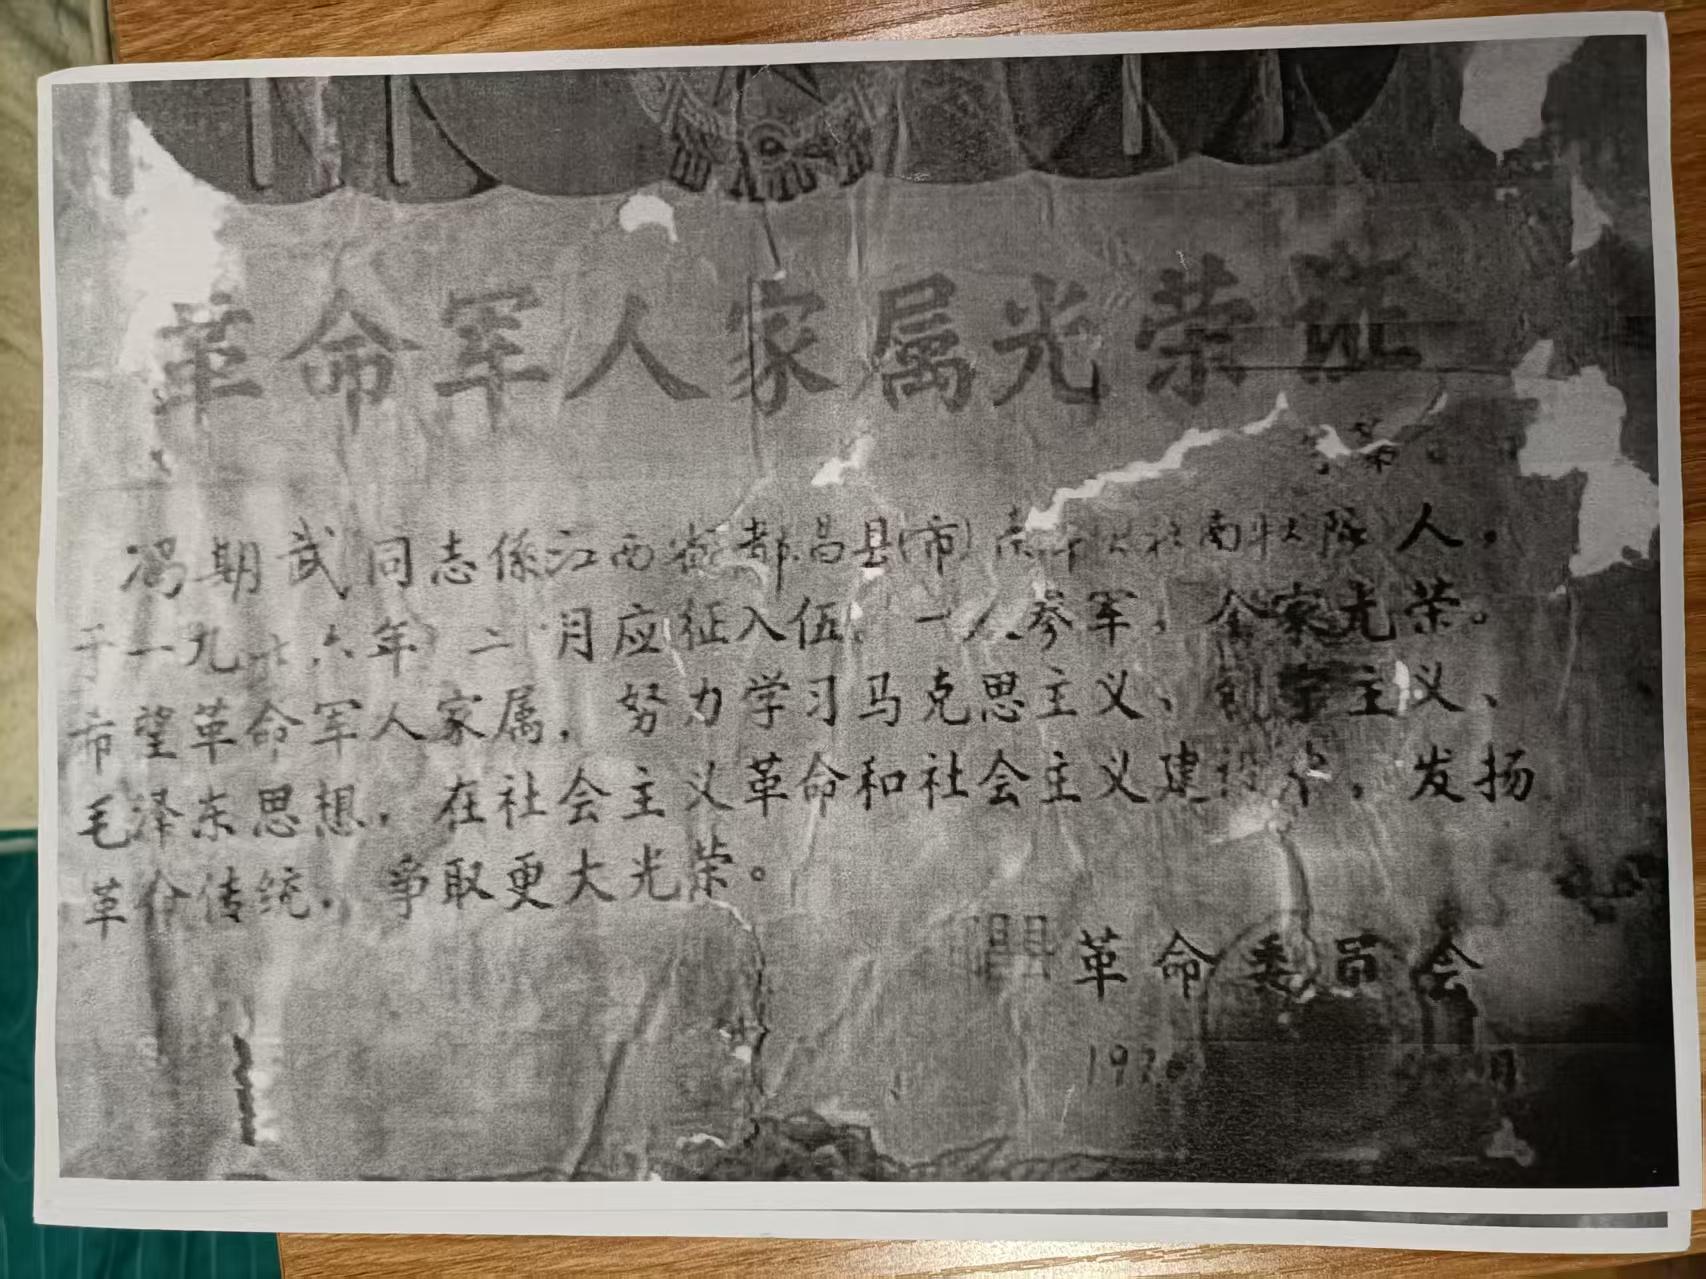 革命军人家属光荣证
字第
冯期武同志係江西省都昌县(市)南队人，
于一九六年二月应征入伍，一人参军，全家光荣。
希望革命军人家属，努力学习马克思主义、列宁主义、
毛泽东思想，在社会主义革命和社会主义建设中，发扬
革命传统，争取更大光荣。
县革命委员会
197 月